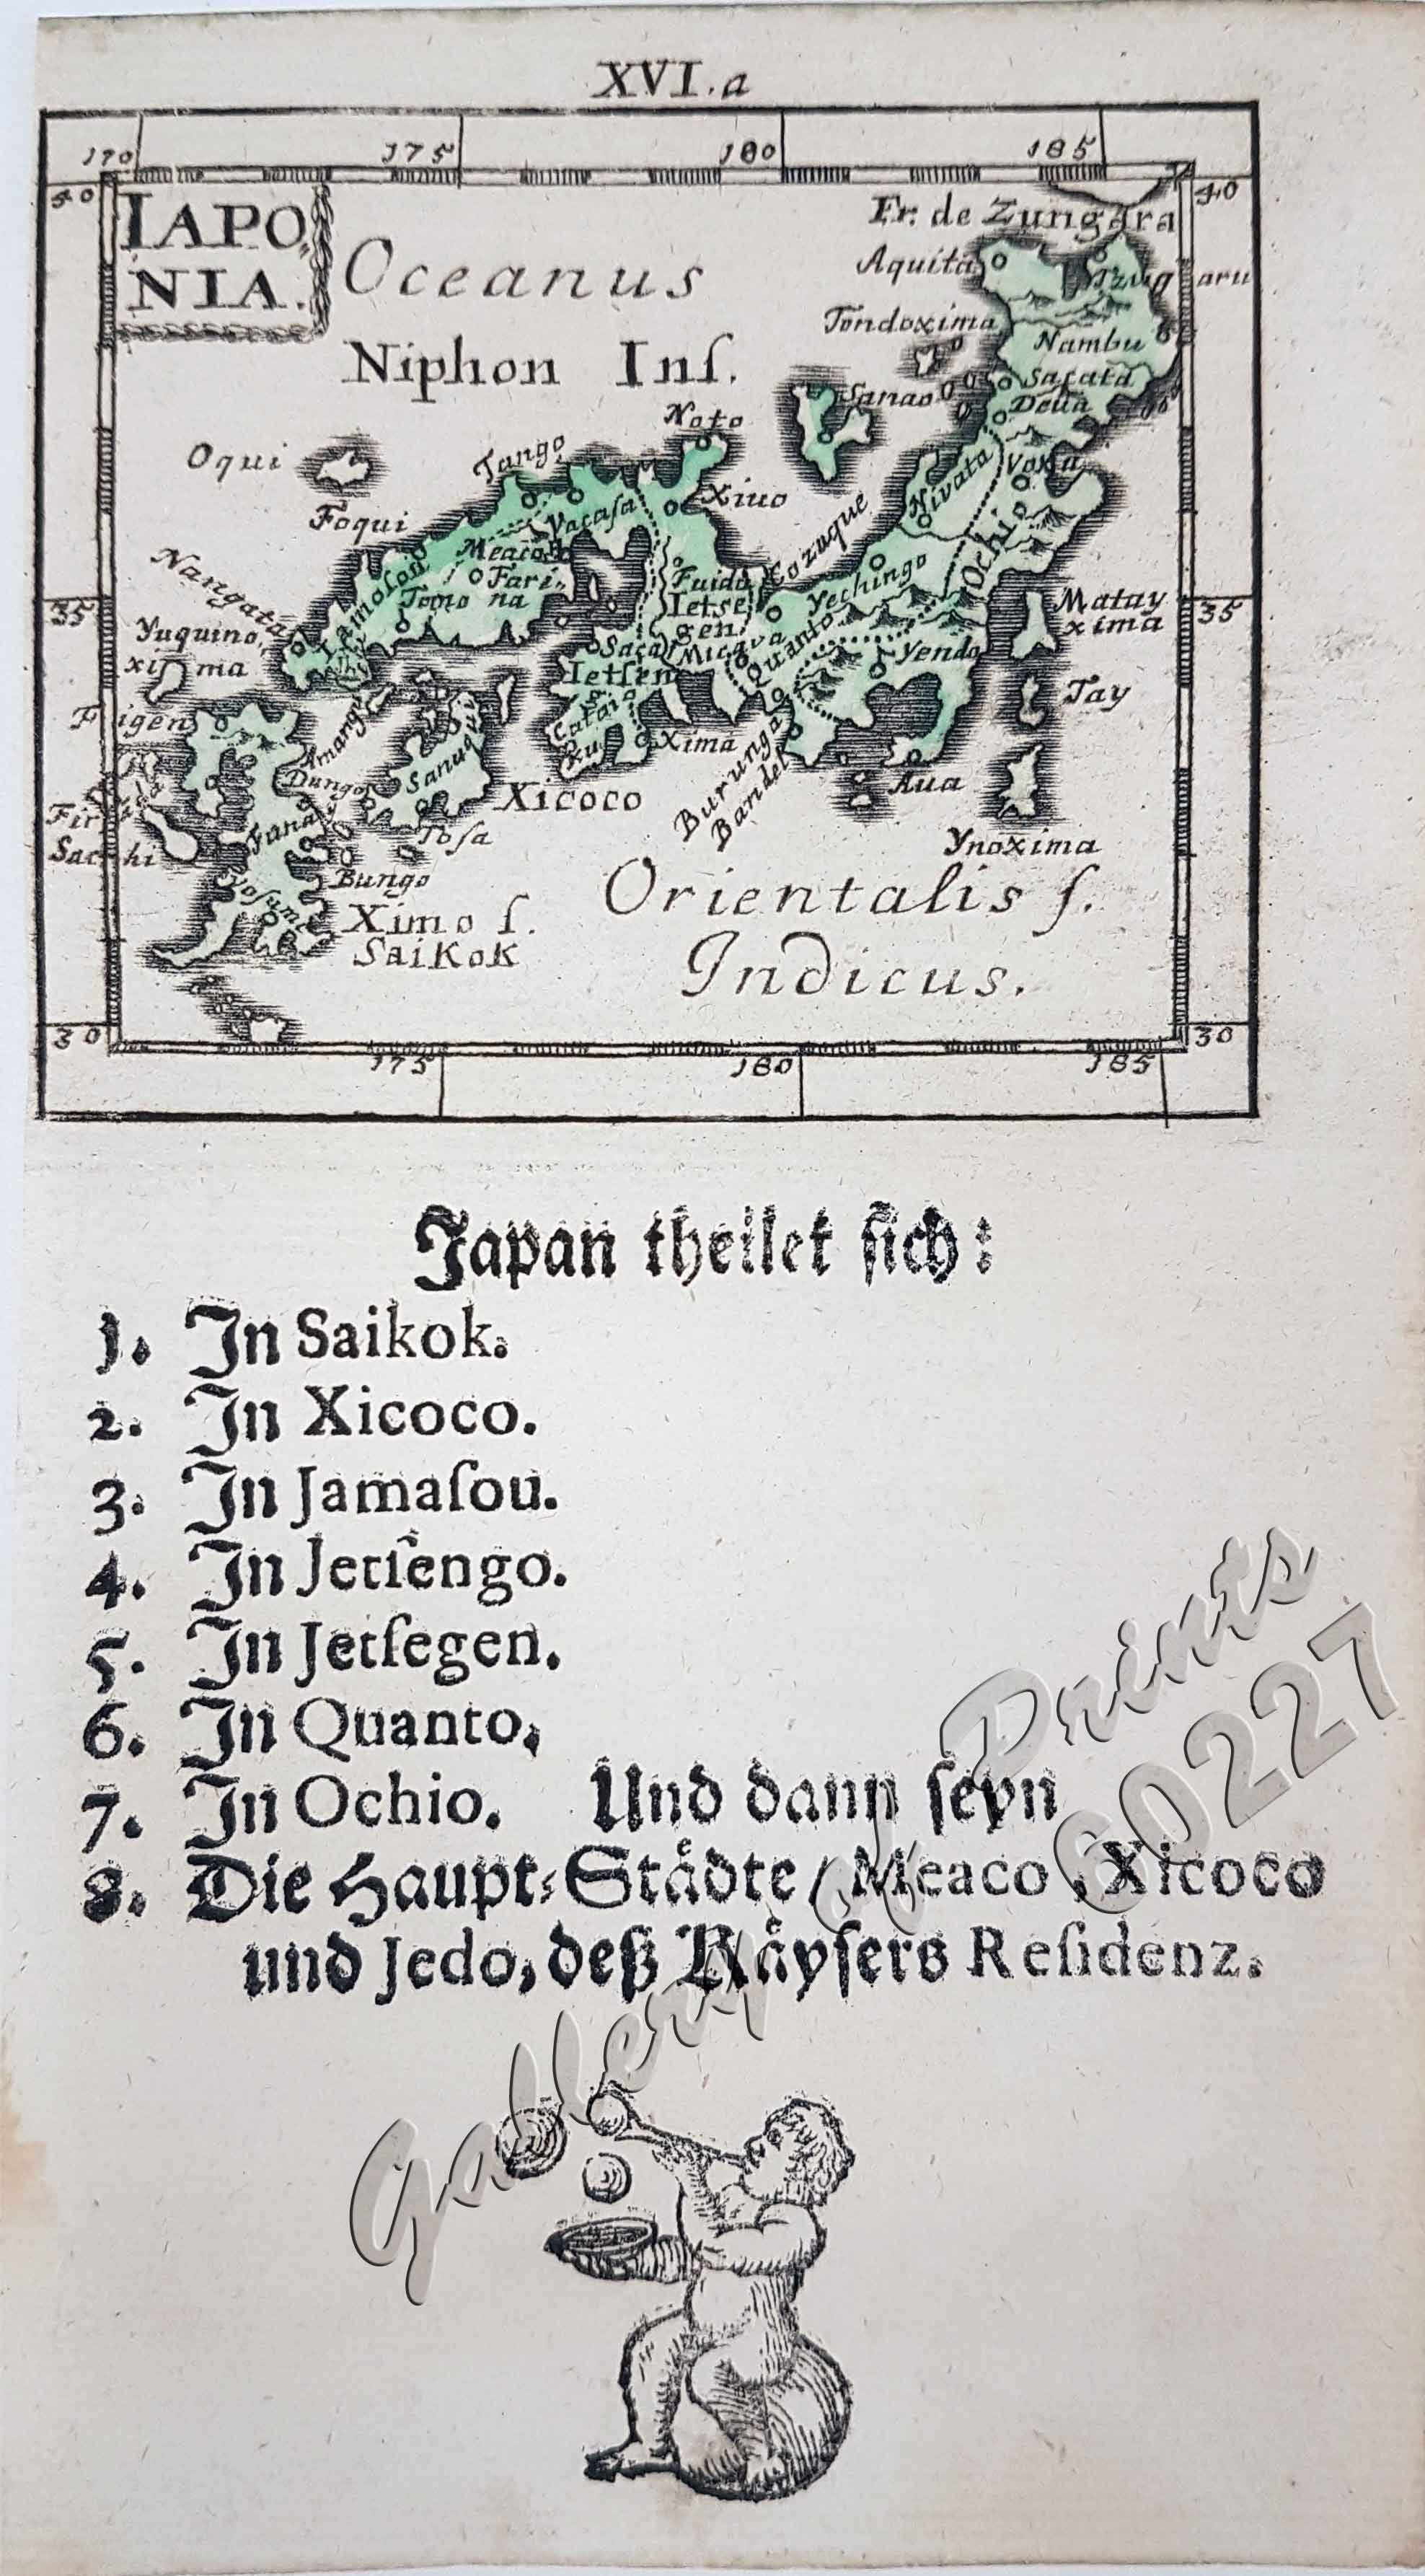 XVI.a
170 175 180 185
40 40
IAPO
NIA.
Oceanus
Niphon Inſ.
Fr. de Zungara
Aquita
Tzugaru
Tondoxima
Nambu
Sanao
Sacata
Deua
Noto
Oqui
Tango
Xiuo
Nivata
Voxu
Foqui
Vacasa
Cozuque
Ochio
Meaco
Farina
Fuida
Yechingo
Nangata
Iamosoit
Tomo
Ietsegen
35 35
Matay
xima
Yuquino
xima
Saca
Micava
Quanto
Yendo
Ietsen
Tay
Figen
Amangu
Catai
Xima
Dungo
Sanuqui
Xicoco
Burunga
Bandel
Aua
Funai
Tosa
Ynoxima
Bungo
Vosumi
Ximo ſ.
Saikok
Orientalis ſ.
Indicus.
30 30
175 180 185
Japan theilet ſich:
1. In Saikok.
2. In Xicoco.
3. In Jamaſou.
4. In Jetſengo.
5. In Jetſegen.
6. In Quanto,
7. In Ochio. Und dann ſeyn
8. Die Haupt-Staͤdte / Meaco, Xicoco
und Jedo, deß Kaͤyſers Reſidenz.
Gallery of Prints
60227